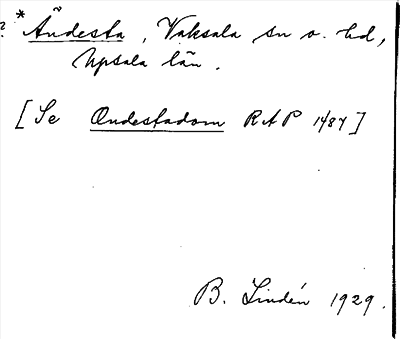 ? * Ändesta, Vaksala sn o. hd,
Upsala län.
[Se Ændestadom RAP 1/487]
B. Lindén 1929.